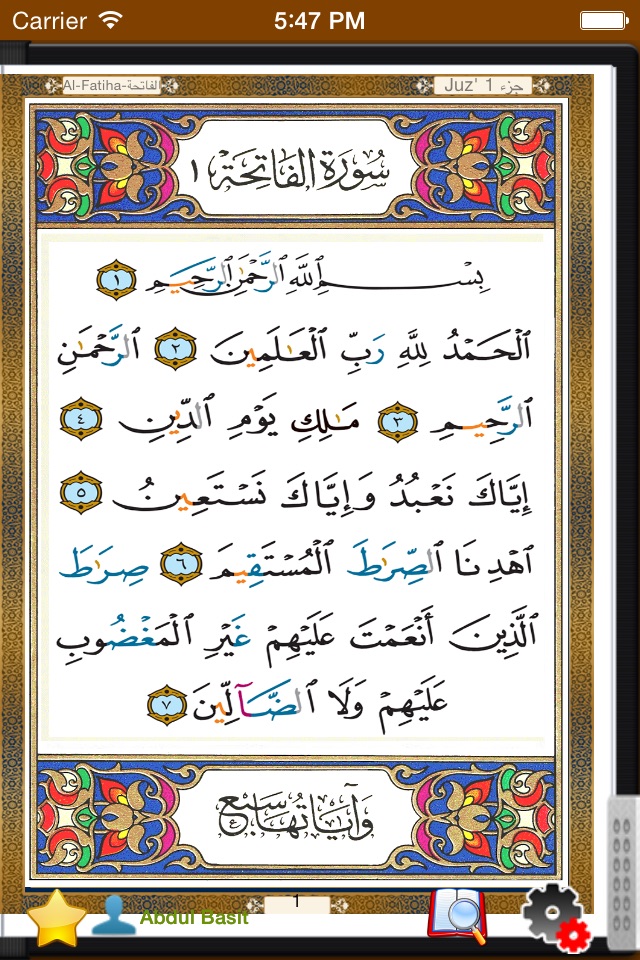 Carrier 5:47 PM
Al-Fatiha-الفاتحة Juz' 1 جزء
سُورَةُ الفَاتِحَةِ ١
بِسْمِ ٱللَّهِ ٱلرَّحْمَٰنِ ٱلرَّحِيمِ ١
ٱلْحَمْدُ لِلَّهِ رَبِّ ٱلْعَٰلَمِينَ ٢ ٱلرَّحْمَٰنِ
ٱلرَّحِيمِ ٣ مَٰلِكِ يَوْمِ ٱلدِّينِ ٤
إِيَّاكَ نَعْبُدُ وَإِيَّاكَ نَسْتَعِينُ ٥
ٱهْدِنَا ٱلصِّرَٰطَ ٱلْمُسْتَقِيمَ ٦ صِرَٰطَ
ٱلَّذِينَ أَنْعَمْتَ عَلَيْهِمْ غَيْرِ ٱلْمَغْضُوبِ
عَلَيْهِمْ وَلَا ٱلضَّآلِّينَ ٧
وَآيَاتُهَا سَبْعٌ
1
Abdul Basit